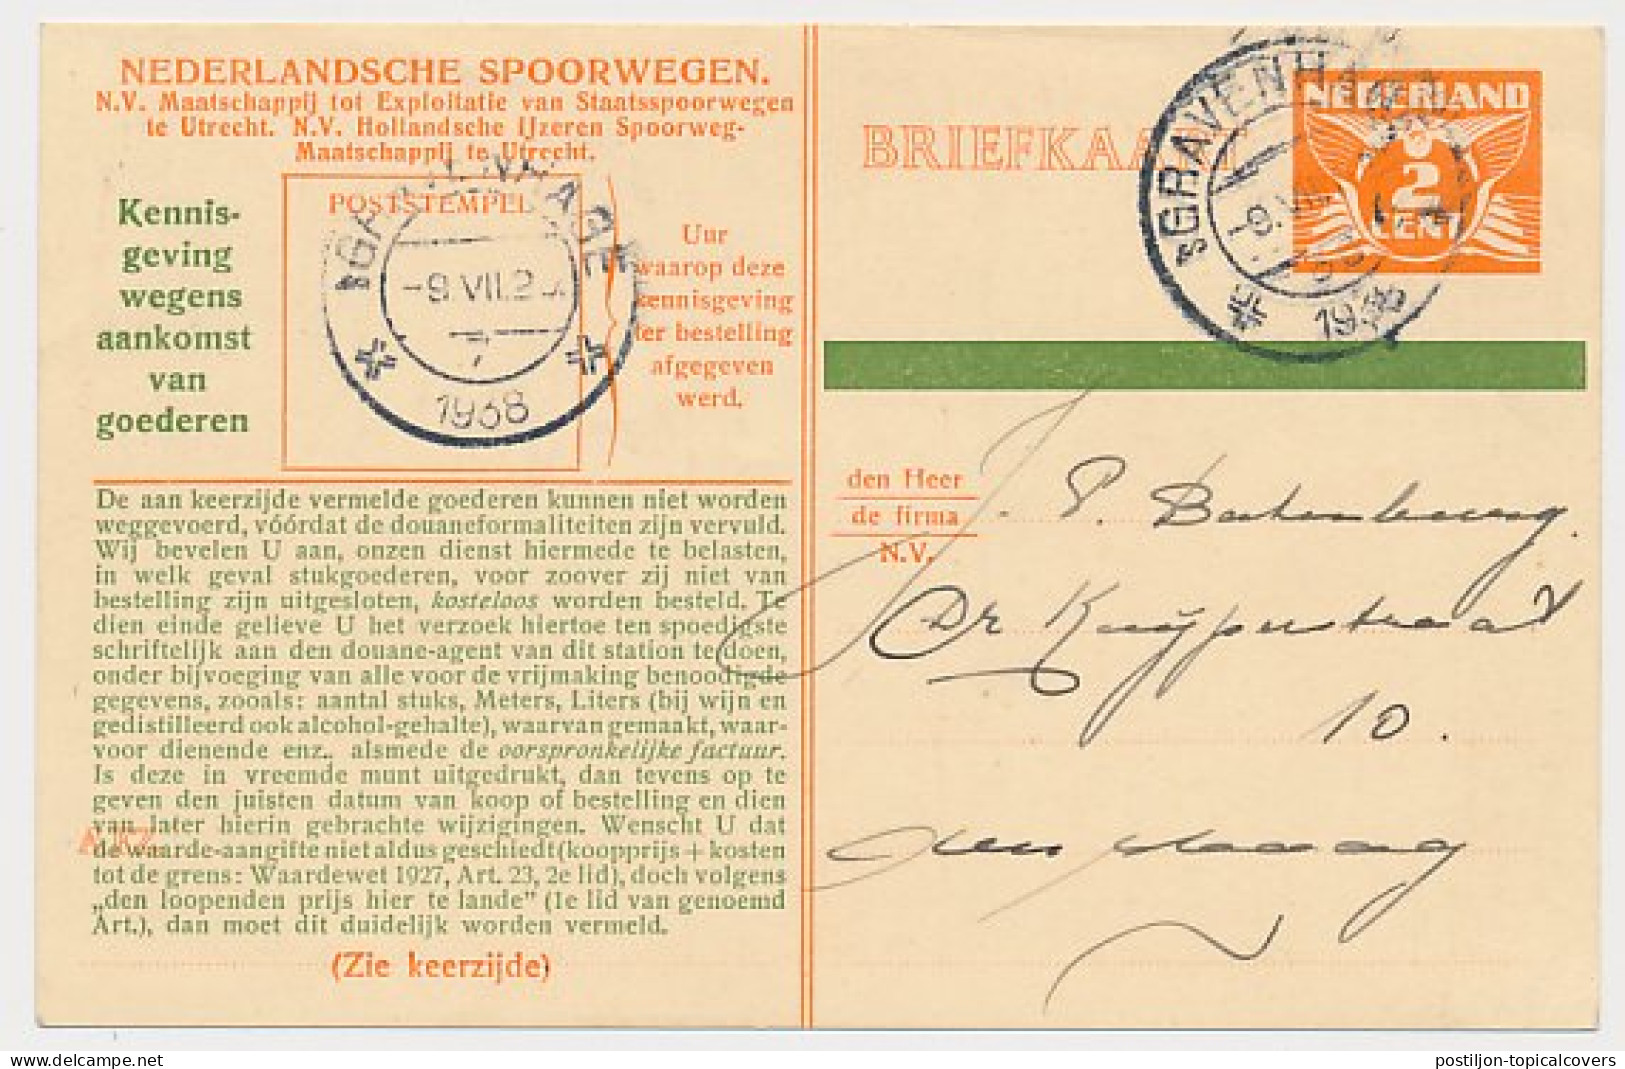 NEDERLANDSCHE SPOORWEGEN.
N.V. Maatschappij tot Exploitatie van Staatsspoorwegen
te Utrecht. N.V. Hollandsche IJzeren Spoorweg-
Maatschappij te Utrecht.
Kennis-
geving
wegens
aankomst
van
goederen
POSTSTEMPEL
'S GRAVENHAGE
-9.VII.2
7
1938
Uur
waarop deze
kennisgeving
ter bestelling
afgegeven
werd.
De aan keerzijde vermelde goederen kunnen niet worden
weggevoerd, vóórdat de douaneformaliteiten zijn vervuld.
Wij bevelen U aan, onzen dienst hiermede te belasten,
in welk geval stukgoederen, voor zoover zij niet van
bestelling zijn uitgesloten, kosteloos worden besteld. Te
dien einde gelieve U het verzoek hiertoe ten spoedigste
schriftelijk aan den douane-agent van dit station te doen,
onder bijvoeging van alle voor de vrijmaking benoodigde
gegevens, zooals: aantal stuks, Meters, Liters (bij wijn en
gedistilleerd ook alcohol-gehalte), waarvan gemaakt, waar-
voor dienende enz., alsmede de oorspronkelijke factuur.
Is deze in vreemde munt uitgedrukt, dan tevens op te
geven den juisten datum van koop of bestelling en dien
van later hierin gebrachte wijzigingen. Wenscht U dat
de waarde-aangifte niet aldus geschiedt (koopprijs + kosten
tot de grens: Waardewet 1927, Art. 23, 2e lid), doch volgens
„den loopenden prijs hier te lande” (1e lid van genoemd
Art.), dan moet dit duidelijk worden vermeld.
(Zie keerzijde)
BRIEFKAART
NEDERLAND
2
CENT
'S GRAVENHAGE
-9.VII
1938
den Heer
de firma
N.V.
P. Batenburg.
Dr Kuyperstraat
10.
den Haag
postiljon-topicalcovers